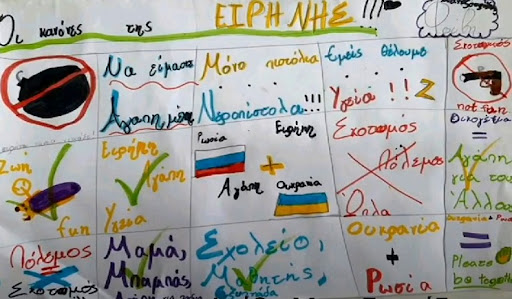 Οι κανόνες της ΕΙΡΗΝΗΣ!!!
Να είμαστε
Αγαπημένοι
Μόνο πιστόλια
Νεροπίστολα!!!
Εμείς θέλουμε
Υγεία!!
Σκοτωμός
not fun
Ζωη
fun
Ειρήνη
Αγάπη
Υγεία
Ρωσία
Ειρήνη
+
Αγάπη
Ουκρανία
Σκοτωμός
Πόλεμος
Όπλα
=
Αγάπη
για τους
Άλλους
Πόλεμος
Σκοτωμός
Μαμά,
Μπαμπάς,
Σχολείο,
Μαθητής,
Ουκρανία
+
Ρωσία
Ουκρανία + Ρωσία
=
Please
be together